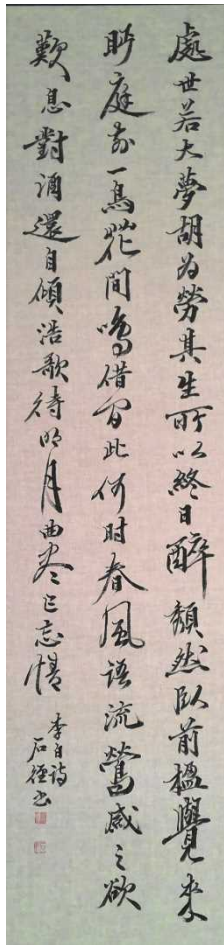 處世若大夢胡為勞其生所以終日醉頹然臥前楹覺來
眄庭前一鳥花間鳴借問此何时春風語流鶯感之欲
歎息對酒還自傾浩歌待明月曲盡已忘情
李白詩
石徑书